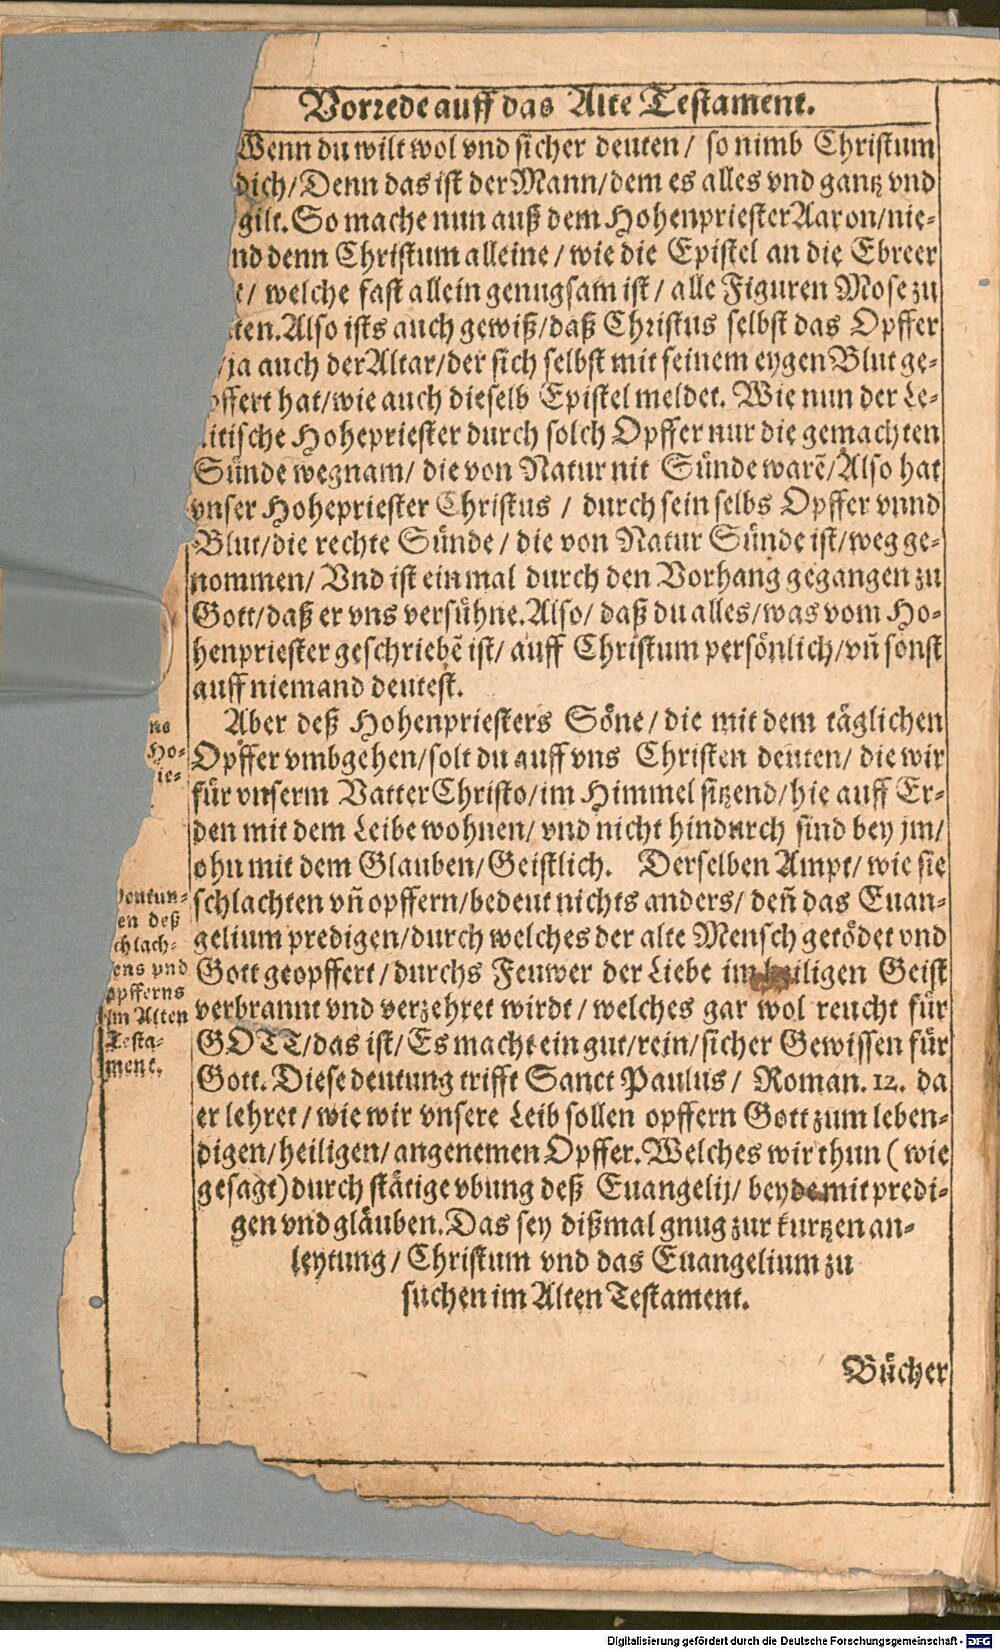 Vorrede auff das Alte Testament.
Wenn du wilt wol vnd sicher deuten / so nimb Christum
dich / Denn das ist der Mann / dem es alles vnd gantz vnd
gilt. So mache nun auß dem Hohenpriester Aaron / nie-
nd denn Christum alleine / wie die Epistel an die Ebreer
t / welche fast allein genugsam ist / alle Figuren Mose zu
ten. Also ists auch gewiß / daß Christus selbst das Opffer
/ ja auch der Altar / der sich selbst mit seinem eygen Blut ge-
opffert hat / wie auch dieselb Epistel meldet. Wie nun der Le-
itische Hohepriester durch solch Opffer nur die gemachten
Sünde wegnam / die von Natur nit Sünde warẽ / Also hat
vnser Hohepriester Christus / durch sein selbs Opffer vnnd
Blut / die rechte Sünde / die von Natur Sünde ist / weg ge-
nommen / Vnd ist einmal durch den Vorhang gegangen zu
Gott / daß er vns versühne. Also / daß du alles / was vom Ho-
henpriester geschriebẽ ist / auff Christum persönlich / vñ sonst
auff niemand deutest.
Aber deß Hohenpriesters Söne / die mit dem täglichen
Opffer vmbgehen / solt du auff vns Christen deuten / die wir
für vnserm Vatter Christo / im Himmel sitzend / hie auff Er-
den mit dem Leibe wohnen / vnd nicht hindurch sind bey jm /
ohn mit dem Glauben / Geistlich. Derselben Ampt / wie sie
schlachten vñ opffern / bedeut nichts anders / deñ das Euan-
gelium predigen / durch welches der alte Mensch getödet vnd
Gott geopffert / durchs Feuwer der Liebe im heiligen Geist
verbrannt vnd verzehret wirdt / welches gar wol reucht für
GOTT / das ist / Es macht ein gut / rein / sicher Gewissen für
Gott. Diese deutung trifft Sanct Paulus / Roman. 12. da
er lehret / wie wir vnsere Leib sollen opffern Gott zum leben-
digen / heiligen / angenemen Opffer. Welches wir thun ( wie
gesagt ) durch stätige vbung deß Euangelij / beyde mit predi-
gen vnd gläuben. Das sey dißmal gnug zur kurtzen an-
leytung / Christum vnd das Euangelium zu
suchen im Alten Testament.
Bücher
ns
Ho-
ie-
eutun-
en deß
chlach-
ens vnd
opfferns
im Alten
Testa-
ment.
Digitalisierung gefördert durch die Deutsche Forschungsgemeinschaft - DFG